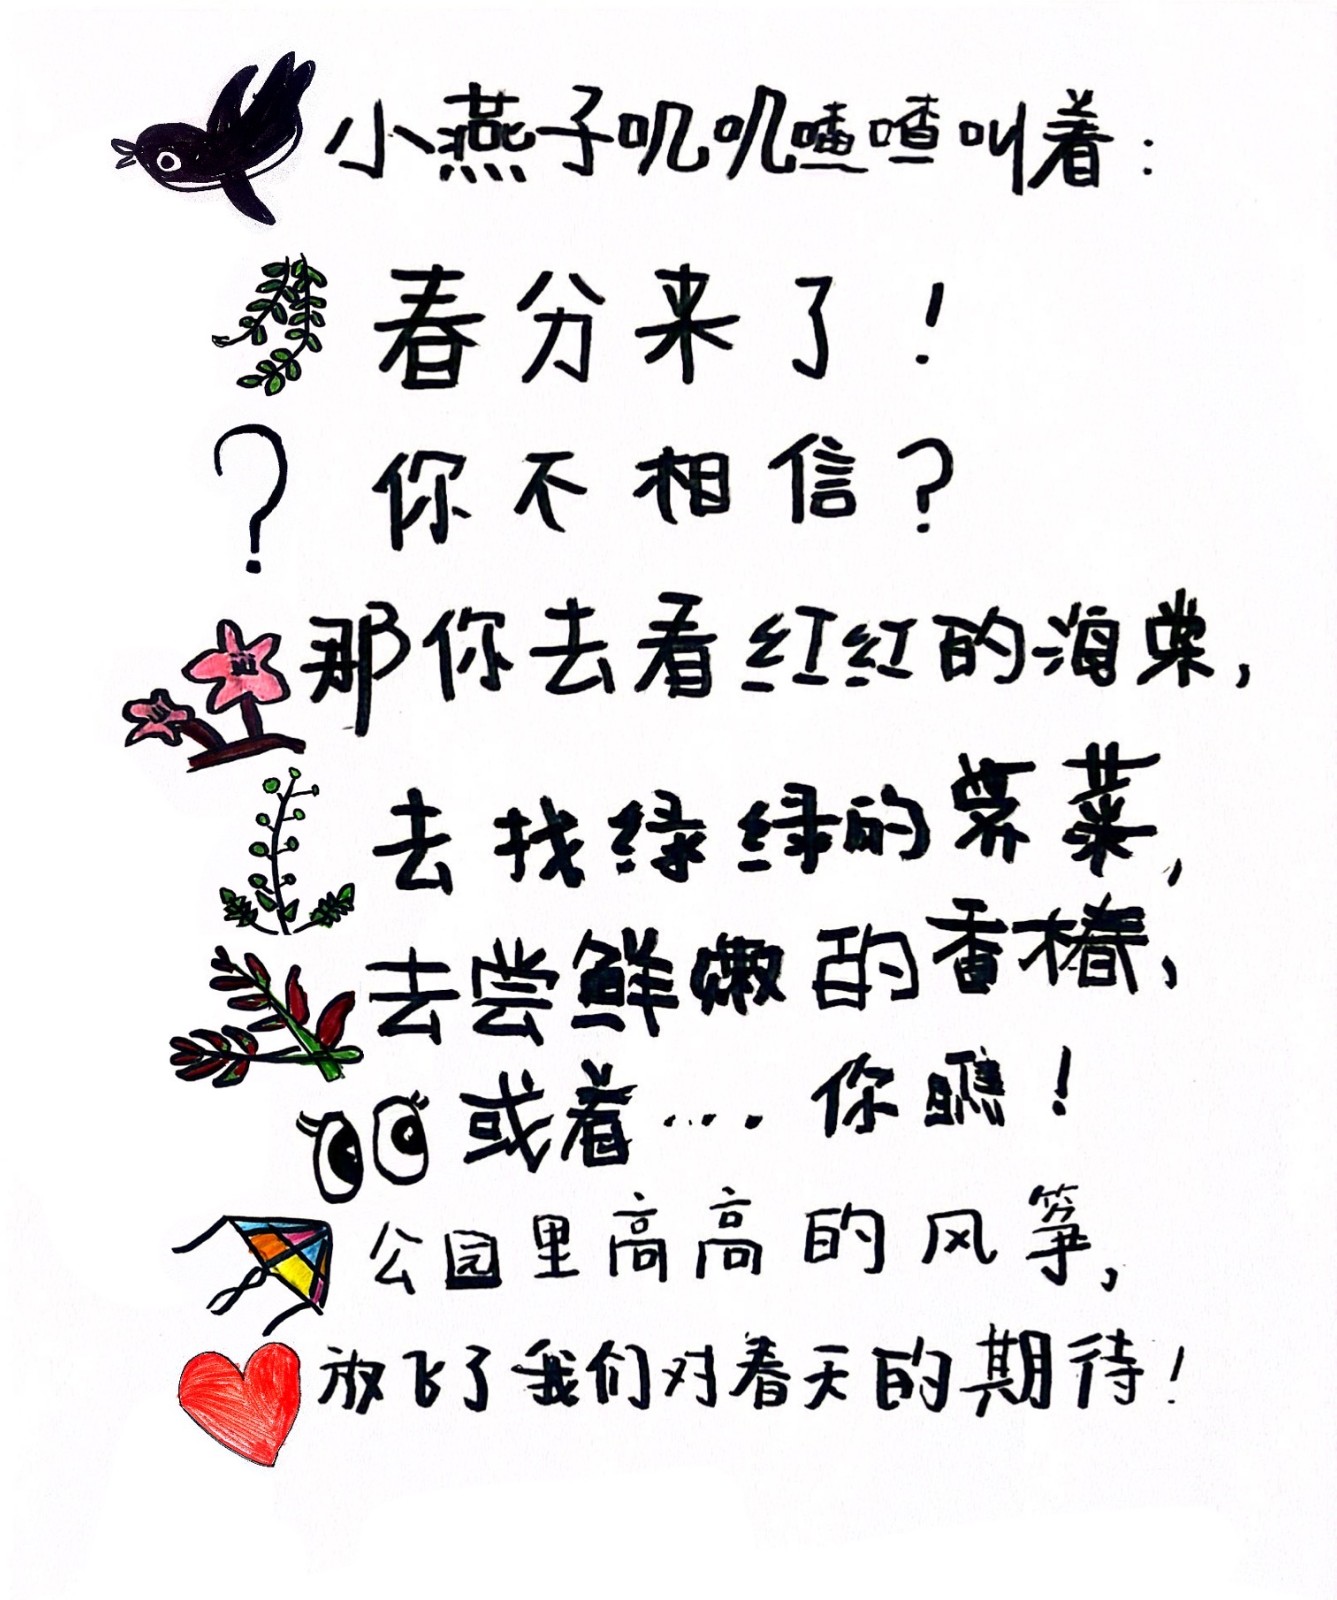 小燕子叽叽喳喳叫着：
春分来了！
你不相信？
那你去看红红的海棠，
去找绿绿的荠菜，
去尝鲜嫩的香椿，
或着…你瞧！
公园里高高的风筝，
放飞了我们对春天的期待！